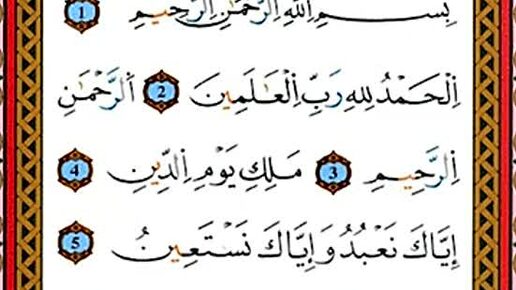 بِسْمِ اللهِ الرَّحْمَٰنِ الرَّحِيمِ 1
اِلْحَمْدُ لِلهِ رَبِّ اِلْعَٰلَمِينَ 2 اَلرَّحْمَٰنِ
اِلرَّحِيمِ 3 مَلِكِ يَوْمِ اِلدِّينِ 4
إِيَّاكَ نَعْبُدُ وَإِيَّاكَ نَسْتَعِينُ 5